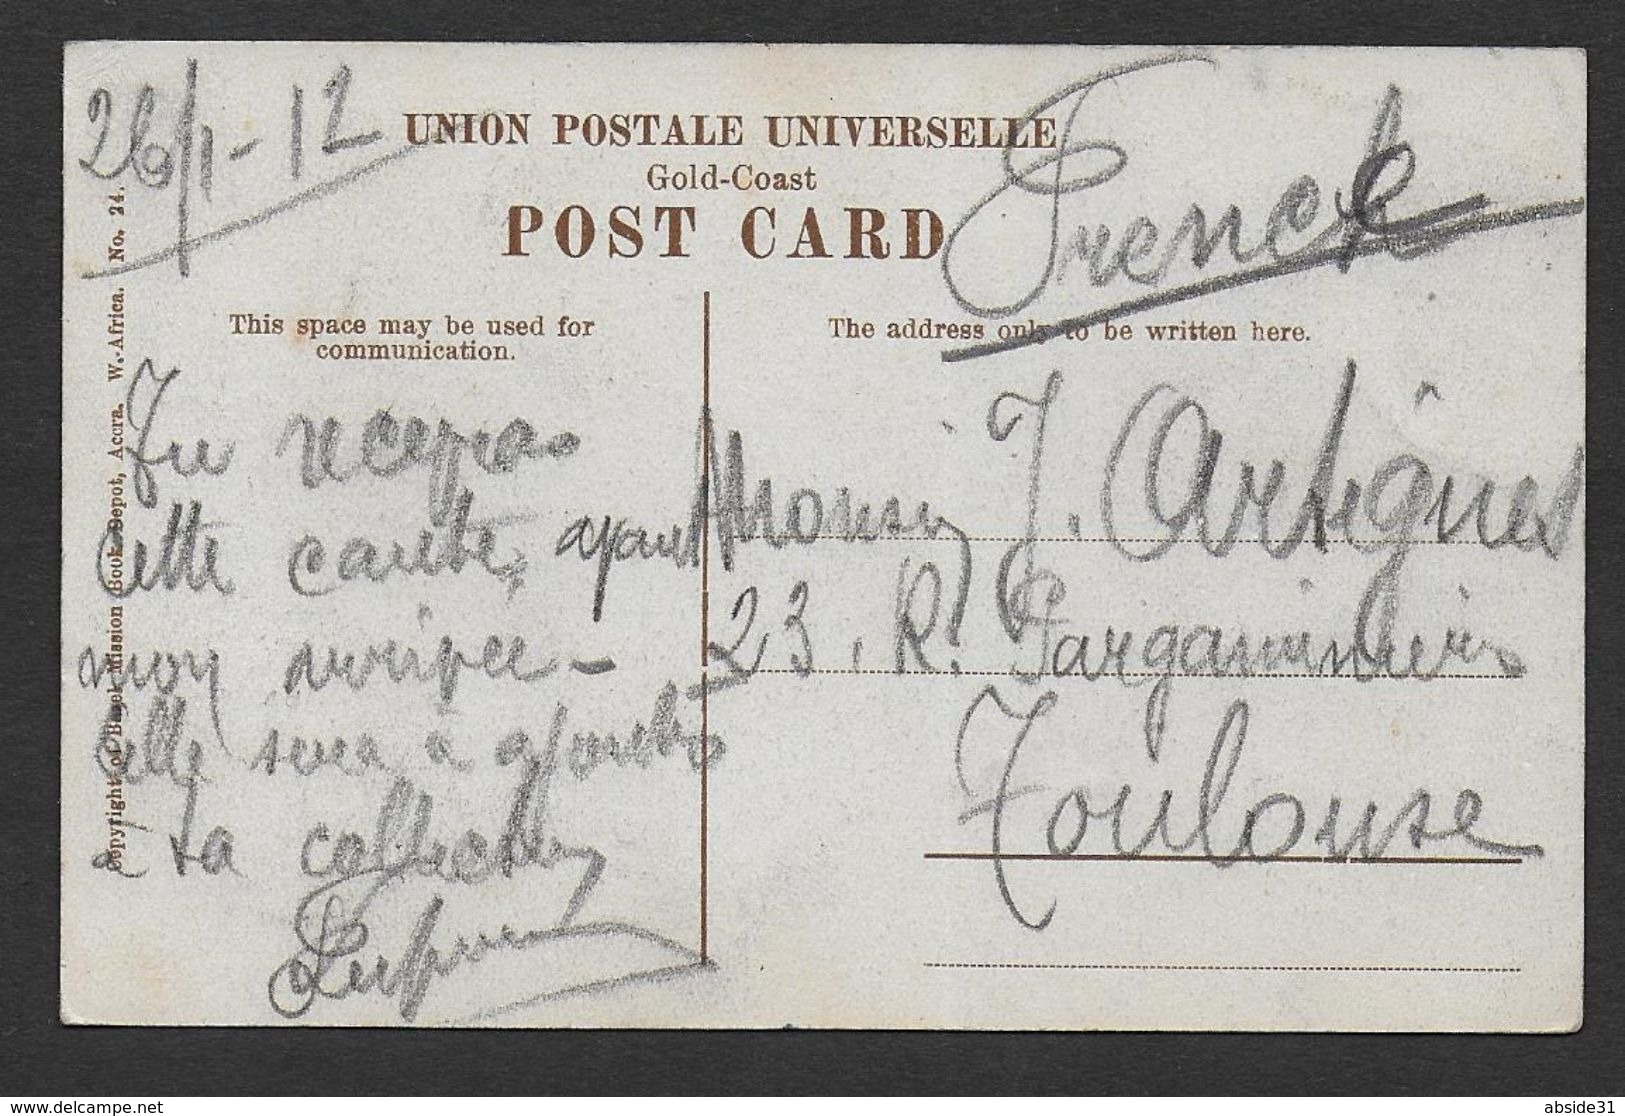 26/1-12
UNION POSTALE UNIVERSELLE
Gold-Coast
POST CARD
French
This space may be used for
communication.
The address only to be written here.
Tu recevras
cette carte, ayant
mon arrivée -
elle sera à ajouter
à ta collection
Monsieur J. Artigues
23, R. Pargaminières
Toulouse
Copyright of Basel Mission Book Depot, Accra. W.-Africa. No. 24.
www.delcampe.net
abside31